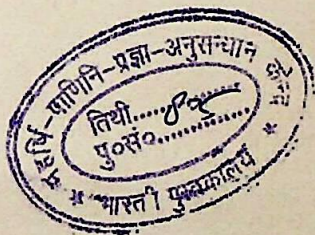 महर्षि-पाणिनि-प्रज्ञा-अनुसन्धान केन्द्र
तिथी.....
पु०सं०.....
* भारती पुस्तकालय *